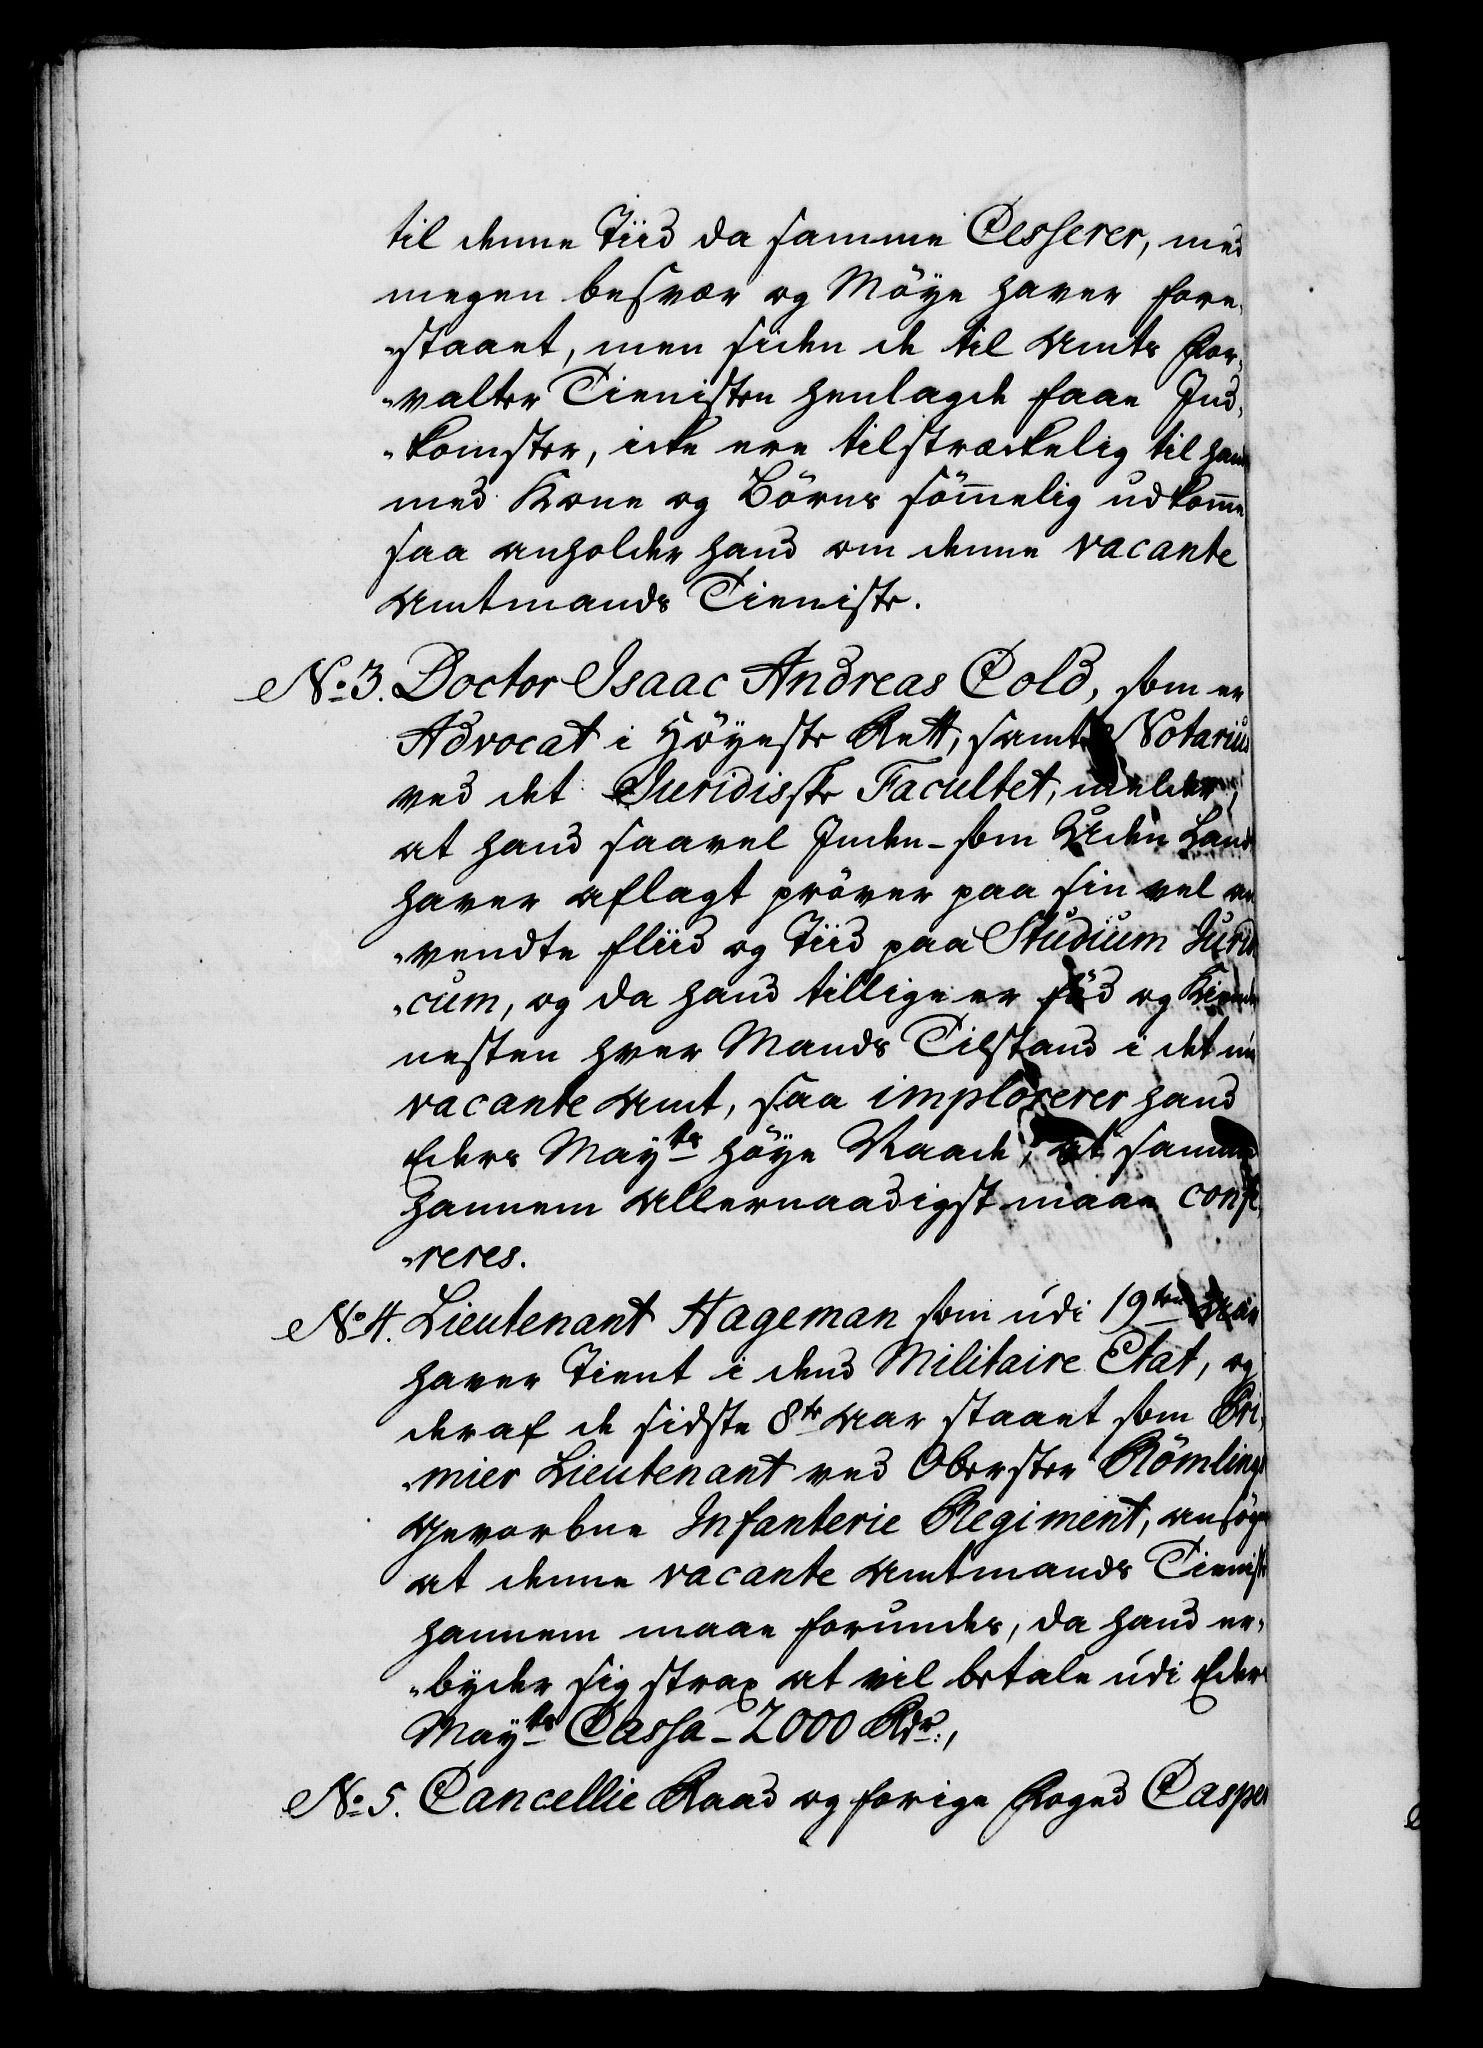 til denne Tiid da samme Cesserer, med
megen besvær og Möye haver fore„
„staaet, men siden de til Amts For„
„valter Tienisten henlagde faae Ind„
„komster, icke ere tilstræckelig til ham
med Kone og Börns sömmelig udkomme
saa anholder hand om denne vacante
Amtmands Tieniste.
No. 3. Doctor Isaac Andreas Cold, som er
Advocat i Höyeste Rett, samt Notarius
ved det Juridiske Facultet, melder,
at hand saavel Inden- som Uden Lands
haver aflagt pröver paa sin vel an
„vendte fliid og Tiid paa Studium Juridi
„cum, og da hand tillige er föd og Kiender
nesten hver Mands Tilstand i det nu
vacante Amt, saa implorerer hand
Eders Mayts höye Naade, at samme
hannem allernaadigst maae confe„
„reres.
No. 4. Lieutenant Hageman som udi 19ten Aar
haver Tient i dend Militaire Etat, og
deraf de sidste 8te Aar staaet som Pri„
„mier Lieutenant ved Oberster Römlings
Gevorbne Infanterie Regiment, ansöger
at denne vacante Amtmands Tieniste
hannem maae forundes, da hand er„
„byder sig strax at vil betale udi Eders
Mayts Cassa - 2000 Rdr.,
No. 5. Cancellie Raad og forige Foged Casper